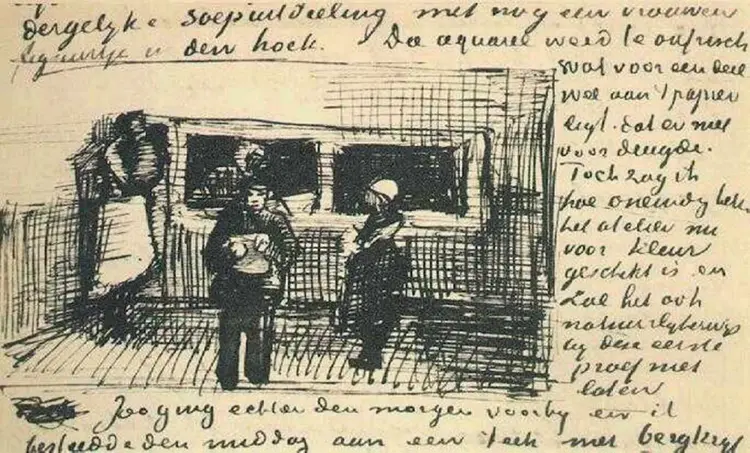 dergelyke soepuitdeeling met nog een vrouwen
figuurtje in den hoek. Die aquarel werd te onfrisch
wat voor een deel
wel aan 't papier
ligt. dat er niet
voor deugde.
Toch zag ik
hoe oneindig beter
het atelier nu
voor kleur
geschikt is en
zal het ook
natuurlyk
by deze eerste
proef niet
laten
Zoo ging echter den morgen voorby en ik
besteedde den middag aan een teek met bergkryt